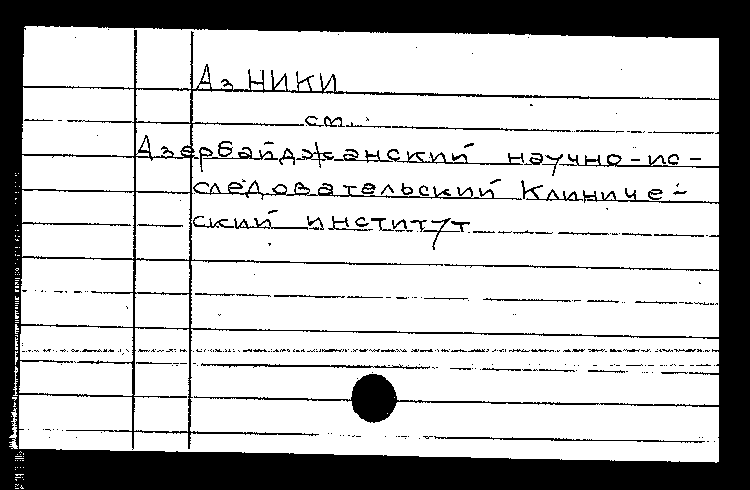 Аз НИКИ
см.
Азербайджанский научно-ис-
следовательский Клиниче-
ский институт